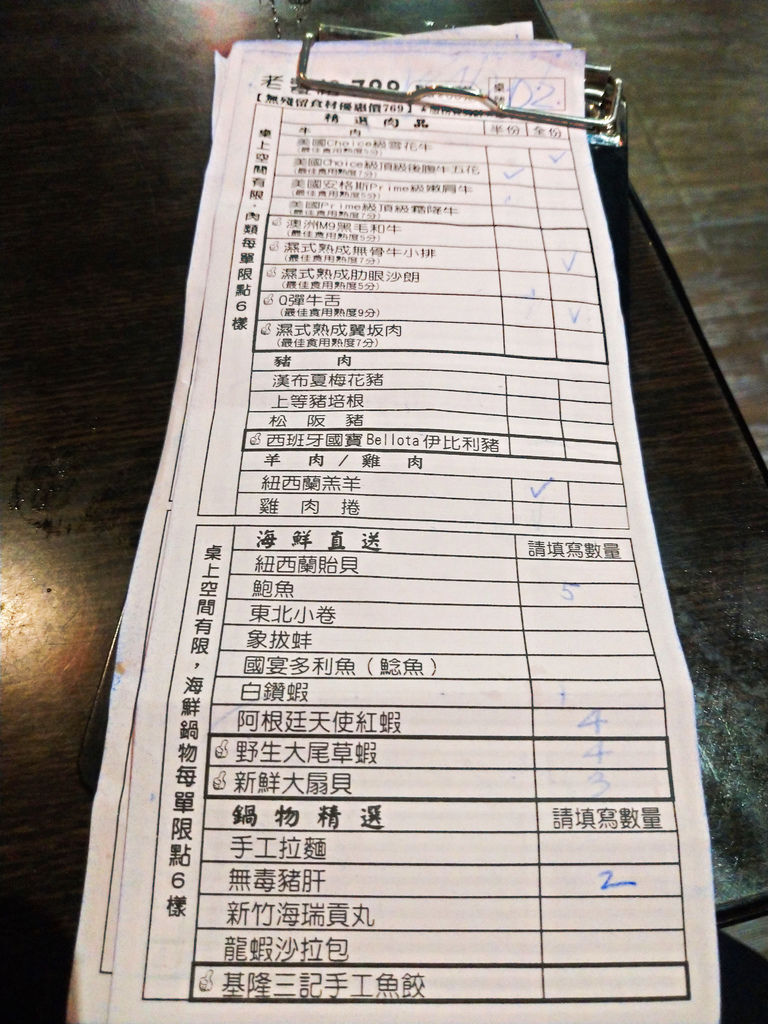 老 798 桌 D2
【無殘留食材優惠價769】
精選肉品 半份 全份
牛 肉
美國Choice級雪花牛 ✓
(最佳食用熟度5分)
美國Choice級頂級後腹牛五花 ✓
(最佳食用熟度7分)
美國安格斯Prime級嫩肩牛
(最佳食用熟度5分)
美國Prime級頂級霜降牛
(最佳食用熟度7分)
澳洲M9黑毛和牛
(最佳食用熟度5分)
濕式熟成無骨牛小排 ✓
(最佳食用熟度7分)
濕式熟成肋眼沙朗
(最佳食用熟度5分)
Q彈牛舌 ✓
(最佳食用熟度9分)
濕式熟成翼坂肉
(最佳食用熟度7分)
桌上空間有限，肉類每單限點6樣
豬 肉
漢布夏梅花豬
上等豬培根
松 阪 豬
西班牙國寶Bellota伊比利豬
羊 肉 / 雞 肉
紐西蘭羔羊 ✓
雞 肉 捲
海鮮直送 請填寫數量
紐西蘭貽貝
鮑魚 5
東北小卷
象拔蚌
國宴多利魚（鯰魚）
白鑽蝦
阿根廷天使紅蝦 4
野生大尾草蝦 4
新鮮大扇貝 3
桌上空間有限，海鮮鍋物每單限點6樣
鍋物精選 請填寫數量
手工拉麵
無毒豬肝 2
新竹海瑞貢丸
龍蝦沙拉包
基隆三記手工魚餃